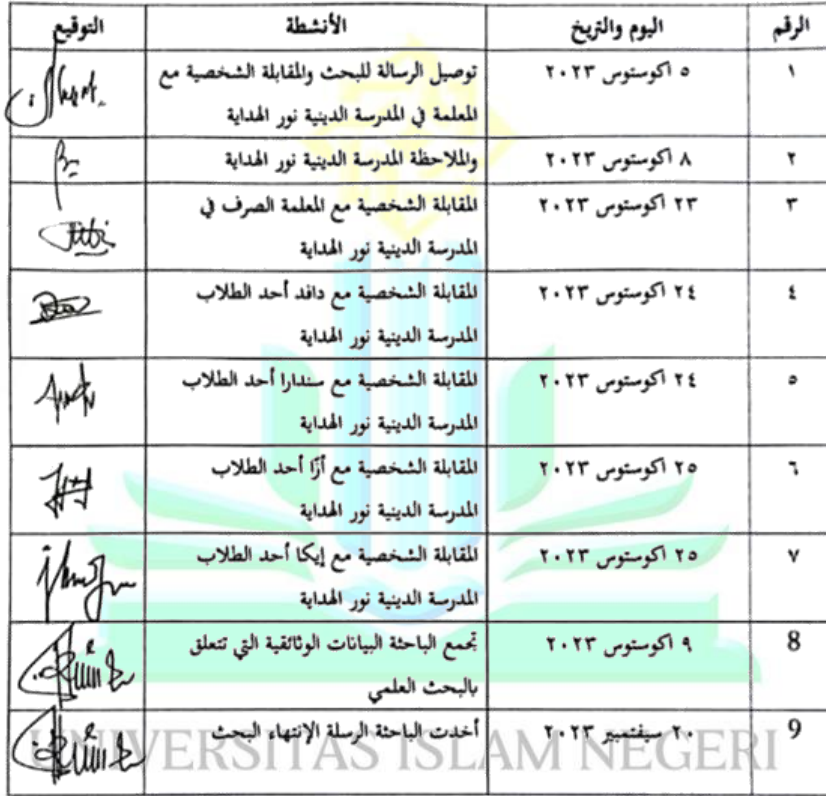 الرقم اليوم والتريخ الأنشطة التوقيع
١ ٥ اكوستوس ٢٠٢٣ توصيل الرسالة للبحث والمقابلة الشخصية مع
المعلمة في المدرسة الدينية نور الهداية
٢ ٨ اكوستوس ٢٠٢٣ والملاحظة المدرسة الدينية نور الهداية
٣ ٢٣ اكوستوس ٢٠٢٣ المقابلة الشخصية مع المعلمة الصرف في
المدرسة الدينية نور الهداية
٤ ٢٤ اكوستوس ٢٠٢٣ المقابلة الشخصية مع دافد أحد الطلاب
المدرسة الدينية نور الهداية
٥ ٢٤ اكوستوس ٢٠٢٣ المقابلة الشخصية مع سندارا أحد الطلاب
المدرسة الدينية نور الهداية
٦ ٢٥ اكوستوس ٢٠٢٣ المقابلة الشخصية مع أزّا أحد الطلاب
المدرسة الدينية نور الهداية
٧ ٢٥ اكوستوس ٢٠٢٣ المقابلة الشخصية مع إيكا أحد الطلاب
المدرسة الدينية نور الهداية
8 ٩ اكوستوس ٢٠٢٣ تجمع الباحثة البيانات الوثائقية التي تتعلق
بالبحث العلمي
9 ٢٠ سيفتمبير ٢٠٢٣ أخدت الباحثة الرسلة الإنتهاء البحث
UNIVERSITAS ISLAM NEGERI